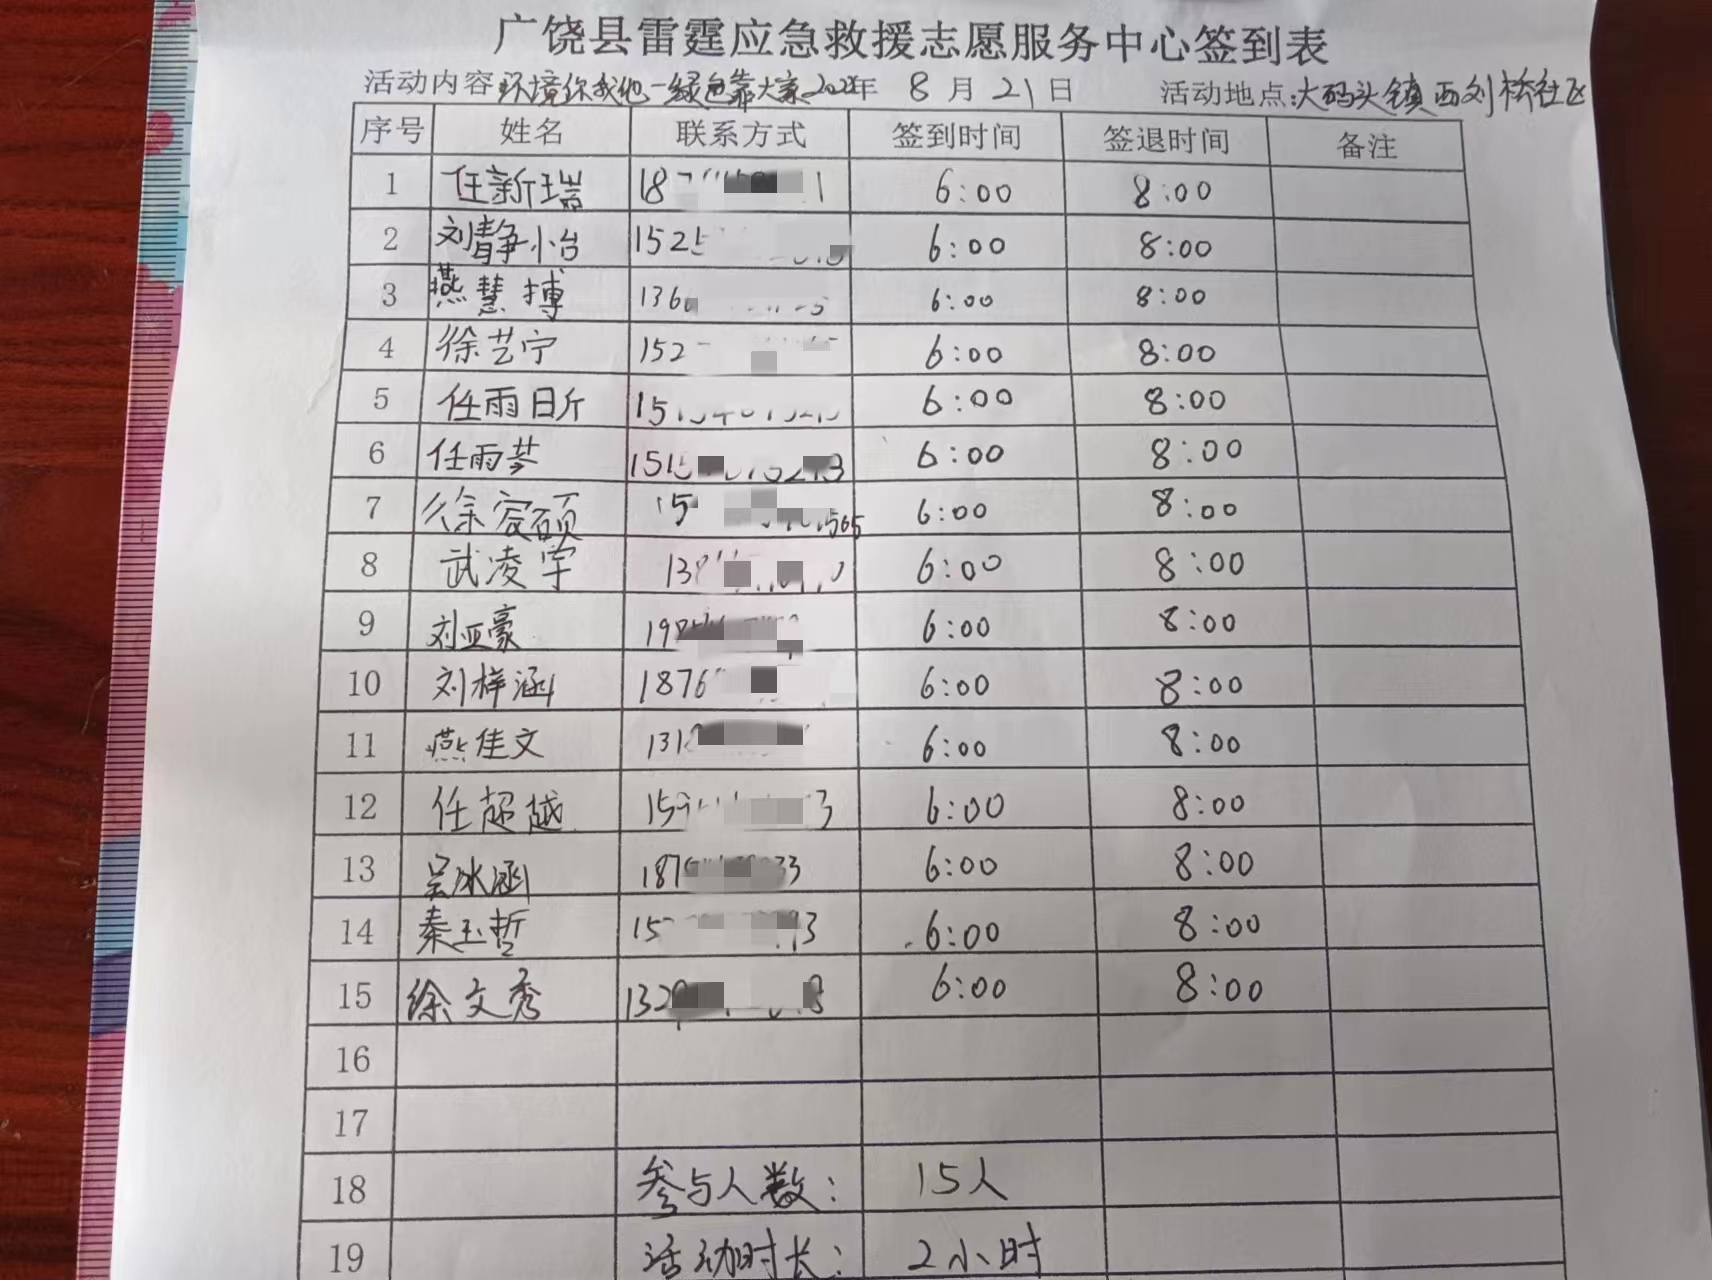 广饶县雷霆应急救援志愿服务中心签到表
活动内容 环境你我他一绿色靠大家 2022年 8月21日 活动地点:大码头镇西刘桥社区
序号 姓名 联系方式 签到时间 签退时间 备注
1 任新瑞 18 1 6:00 8:00
2 刘静怡 152 6:00 8:00
3 燕慧博 136 6:00 8:00
4 徐艺宁 152 6:00 8:00
5 任雨昕 15 6:00 8:00
6 任雨芩 151 6:00 8:00
7 徐容硕 15 565 6:00 8:00
8 武凌宇 13 0 6:00 8:00
9 刘亚豪 19 6:00 8:00
10 刘梓涵 1876 6:00 8:00
11 燕佳文 131 6:00 8:00
12 任超越 159 3 6:00 8:00
13 吴冰涵 187 33 6:00 8:00
14 秦玉哲 15 93 6:00 8:00
15 徐文秀 132 8 6:00 8:00
16
17
18 参与人数: 15人
19 活动时长: 2小时